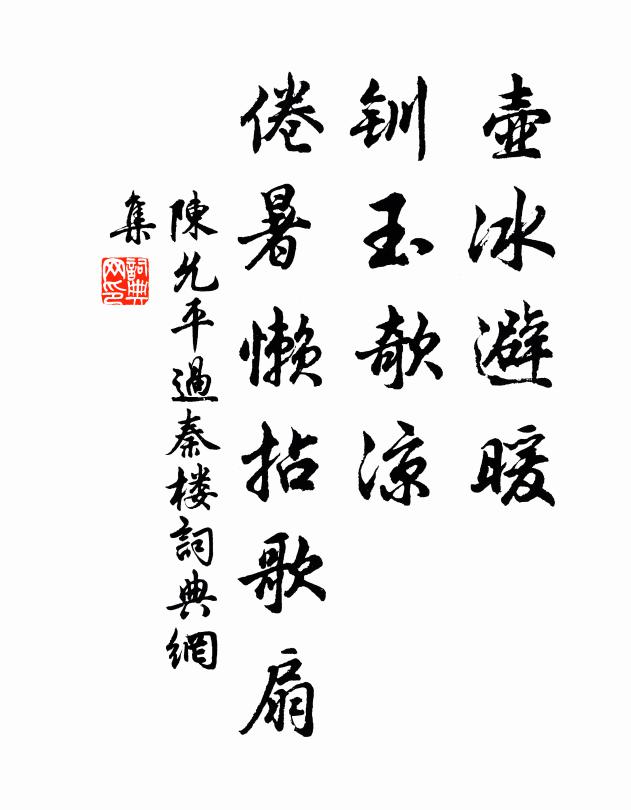 壺冰避暖
釧玉欹涼
倦暑懶拈歌扇
陳允平過秦楼詞典網
集
詞典
网印